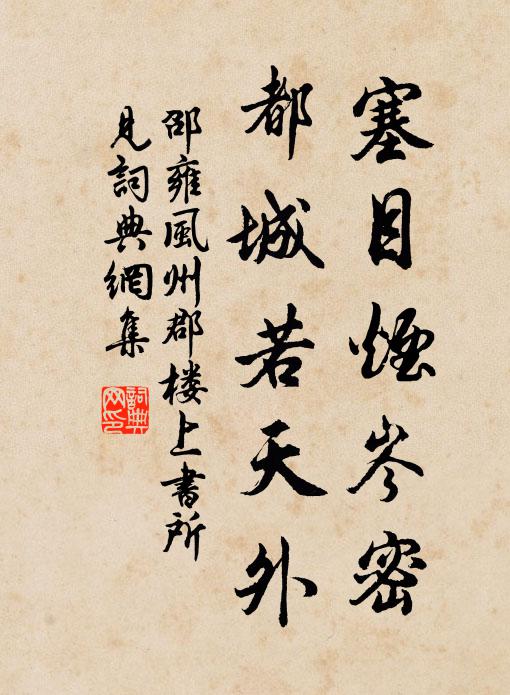 塞目煙岑密
都城若天外
邵雍風州郡楼上書所
見詞典網集
詞典
网印